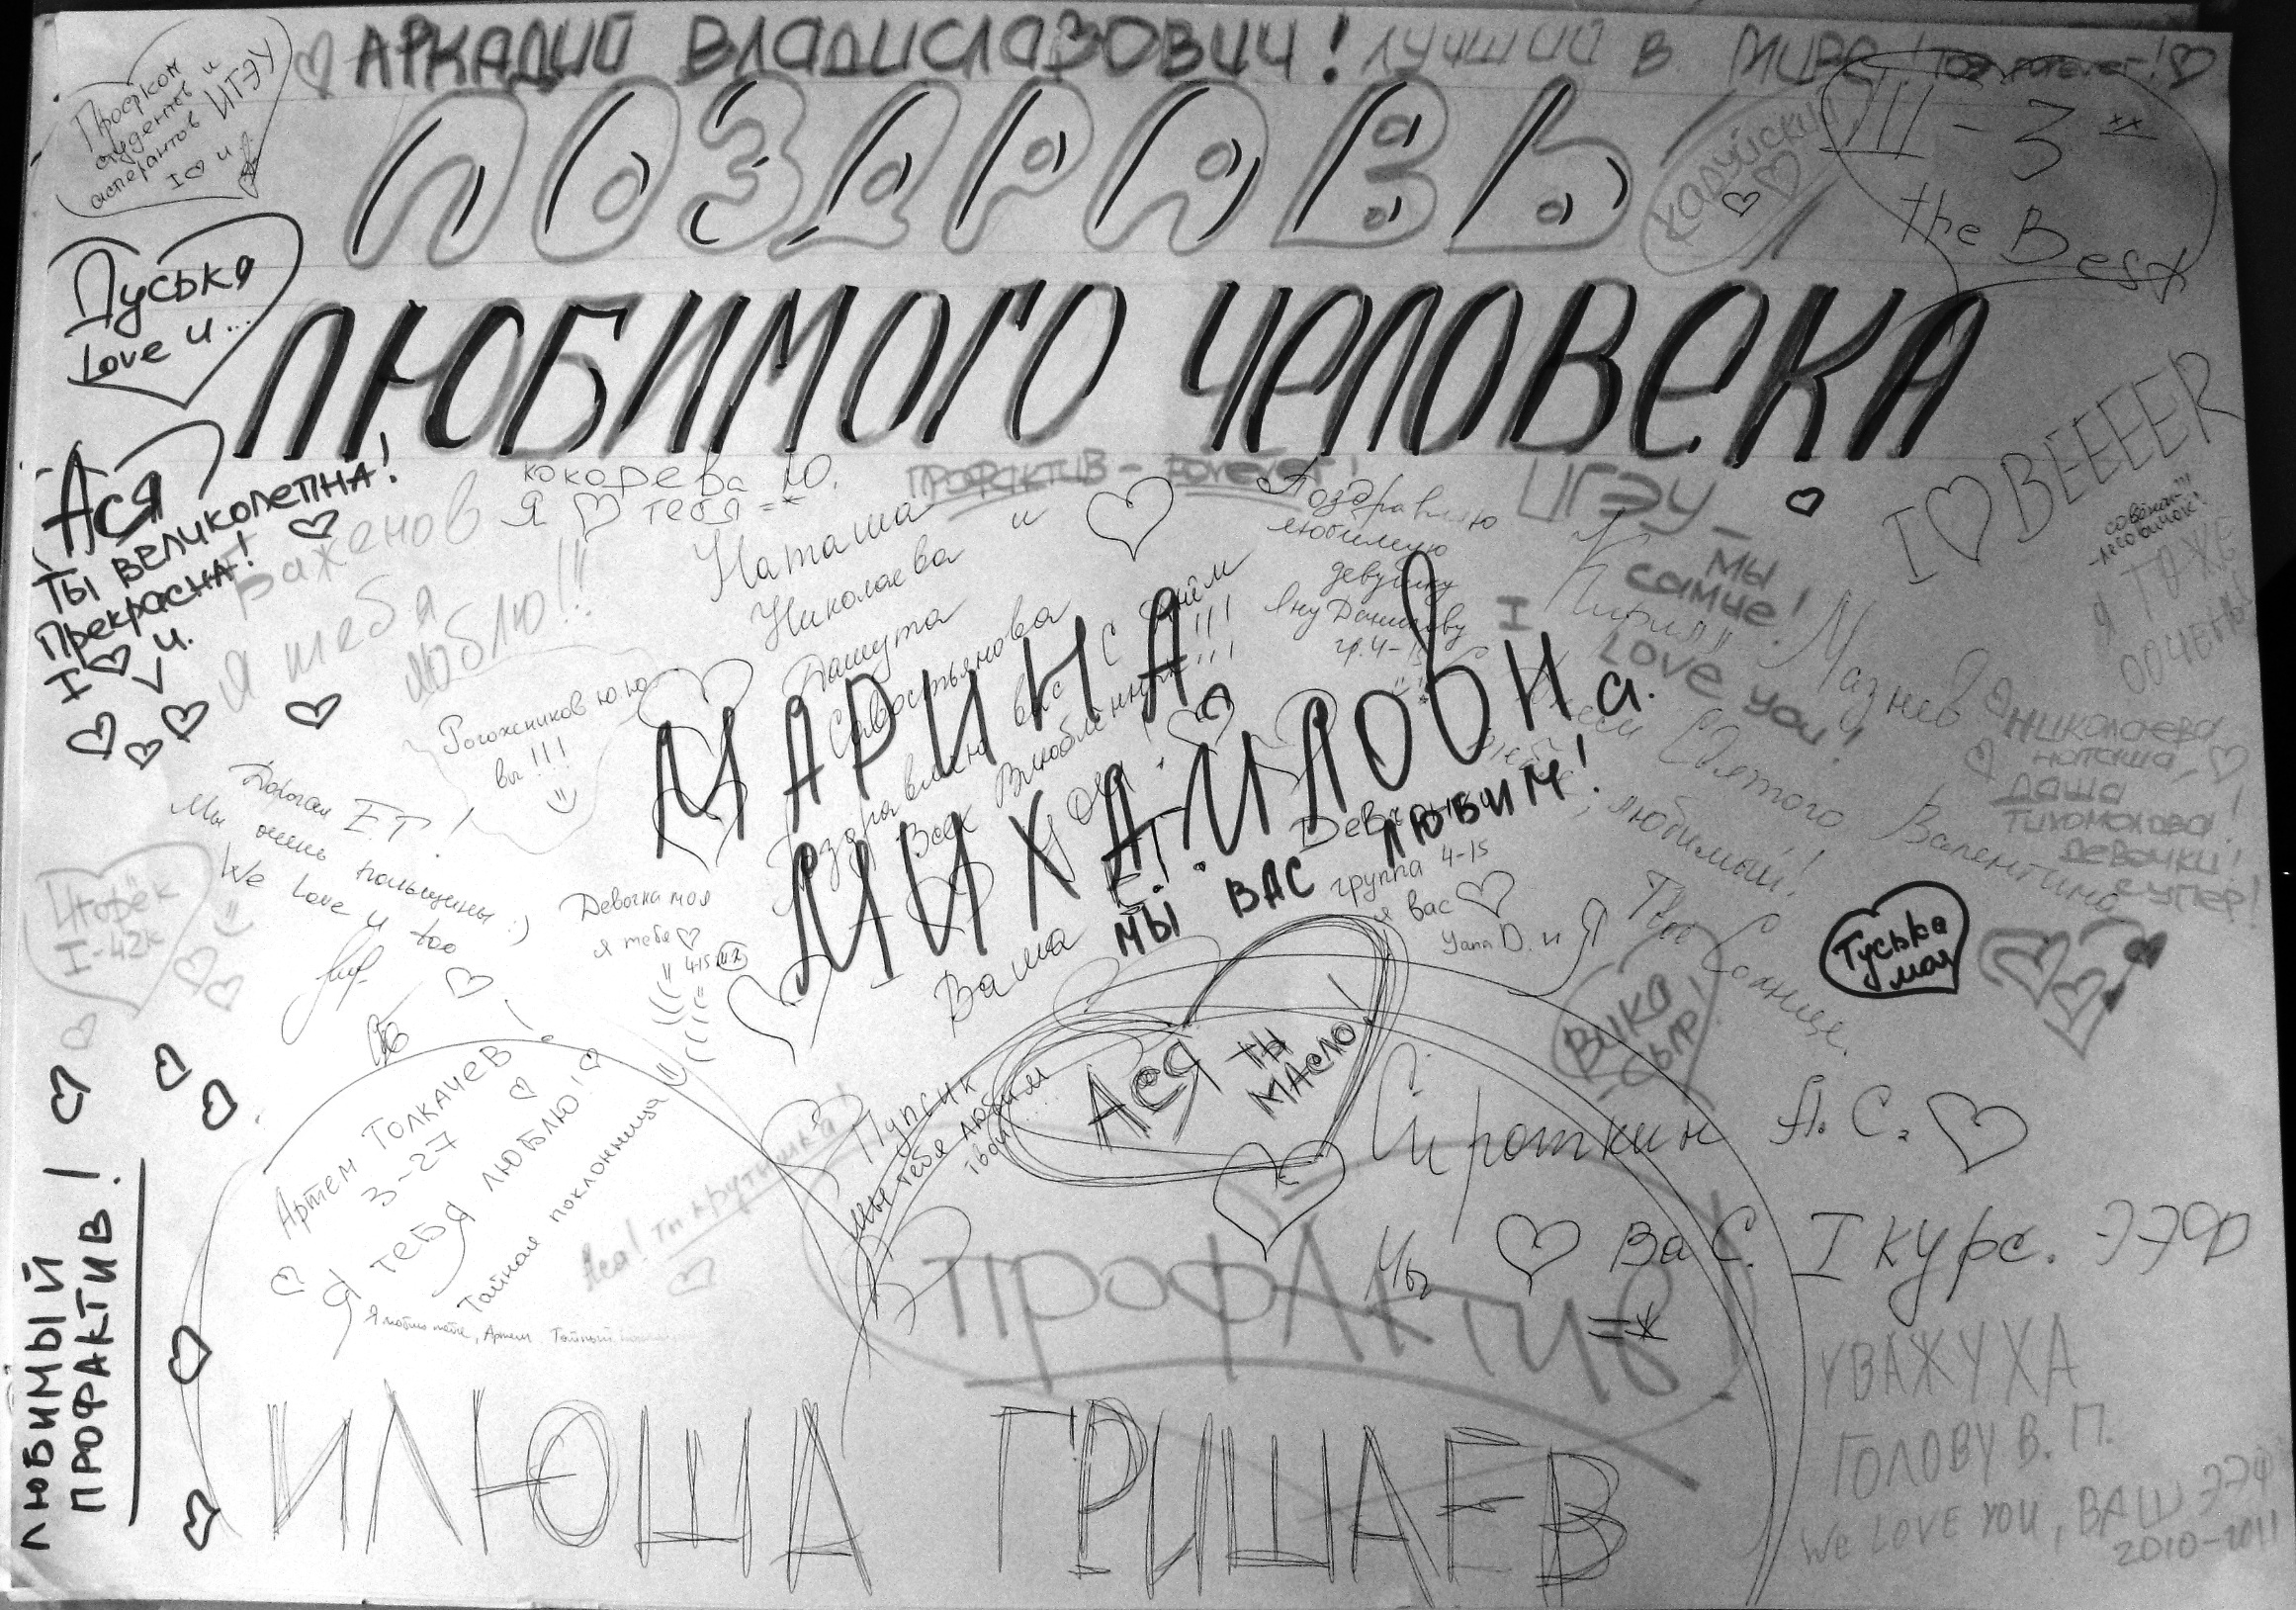 АРКАДИЙ ВЛАДИСЛАВОВИЧ! ЛУЧШИЙ В МИРЕ!
Профком
студентов и
аспирантов ИГЭУ
I ♡ u
ПОЗДРАВЬ
ЛЮБИМОГО ЧЕЛОВЕКА
КАДУЙСКИЙ
III - 3 **
the Best
Пуська
Love u...
Ася
ТЫ ВЕЛИКОЛЕПНА!
Прекрасна!
I ♡ u.
Баженов
Я тебя
люблю!!!
кокорева Ю.
Я ♡ тебя =*
ПРОФАКТИВ - Forever!
Наташа
Николаева
и
Дашута
Савостьянова
Поздравляю вас с Днём
Всех Влюбленных!!!
Ваша Е.Т.
Поздравляю
любимую
девушку
Яну Данилову
гр. 4-15
ИГЭУ -
МЫ
самые!
I
LOVE you!
I ♡ BEEEER
Я ТОЖЕ
ООЧЕНЬ!
Кирилл Мазнев
С Днем Святого Валентина
тебя, любимый!
Ты Солнце.
НИКОЛАЕВА
НАТАША,
ДАША
ТИХОМОЛОВА!
ДЕВОЧКИ!
СУПЕР!
МАРИНА
МИХАЙЛОВНа.
МЫ ВАС ЛЮБИМ!
Рогожников ю ю
вы!!!
Дорогая Е.Т!
Мы очень польщены :)
We Love u too
Игорёк
I-42к
Девочка моя
я тебя ♡
4-15
Девчонки
группа 4-15
я вас ♡
Yana D.
Туська
моя
ВИКА
сыр!
Ася ТЫ
МАСЛО!
Пупсик
мы тебя любим
Артем Толкачев
3-27
Я ТЕБЯ ЛЮБЛЮ!
Тайная поклонница
Я люблю тебя, Артем.
Ася! ты крутышка!
Сироткин А.С. ♡
Мы ♡ ВаС. I курс. ЭЭФ
=*
ПРОФАКТИВ
ЛЮБИМЫЙ
ПРОФАКТИВ!
ИЛЮША ГРИШАЕВ
УВАЖУХА
ГОЛОВУ В.П.
We LOVE YOU, ВАШ ЭЭФ
2010-2011